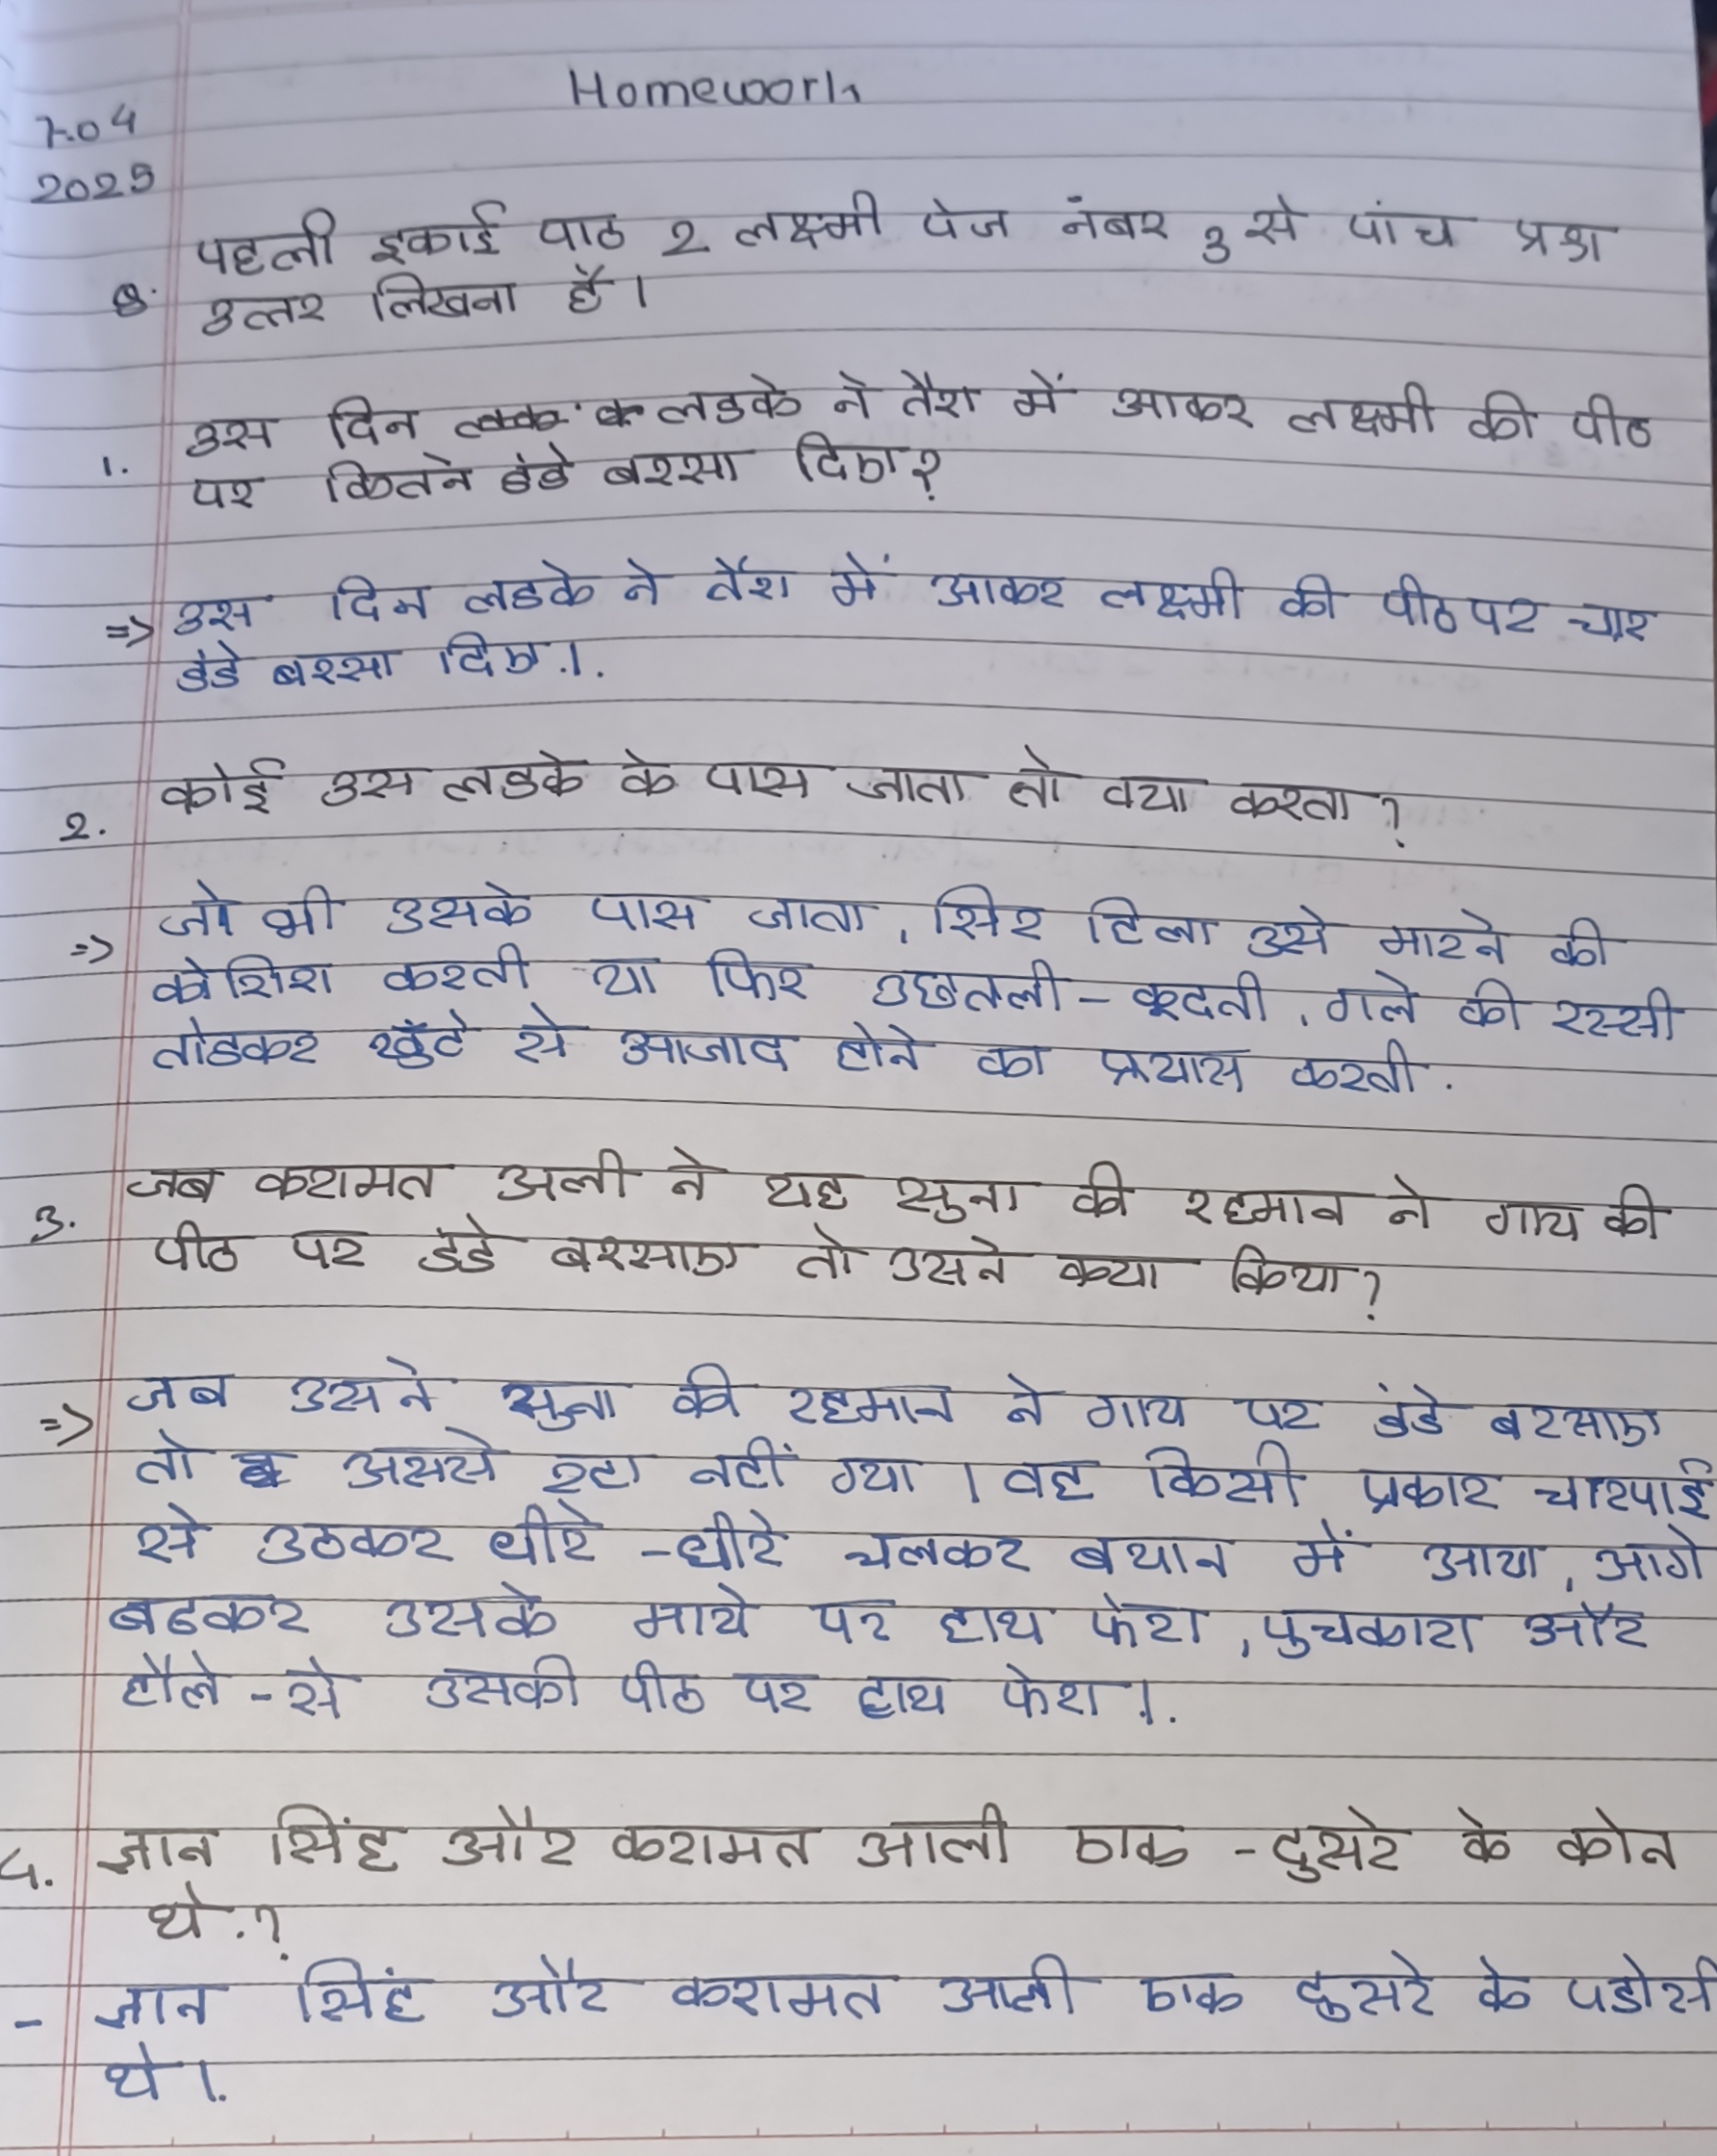 Homework
7.04
2025
पहली इकाई पाठ 2 लक्ष्मी पेज नंबर 3 से पांच प्रश्न
Q. उत्तर लिखना है।
उस दिन लडके ने तैश में आकर लक्ष्मी की पीठ
1. पर कितने डंडे बरसा दिए?
=> उस दिन लडके ने तैश में आकर लक्ष्मी की पीठ पर चार
डंडे बरसा दिए.।.
2. कोई उस लडके के पास जाता तो क्या करता?
=> जो भी उसके पास जाता, सिर हिला उसे मारने की
कोशिश करती या फिर उछतली - कूदती, गले की रस्सी
तोडकर खुँटे से आजाद होने का प्रयास करती.
3. जब करामत अली ने यह सुना की रहमान ने गाय की
पीठ पर डंडे बरसाए तो उसने क्या किया?
=> जब उसने सुना की रहमान ने गाय पर डंडे बरसाए
तो अससे रहा नहीं गया । वह किसी प्रकार चारपाई
से उठकर धीरे - धीरे चलकर बथान में आया, आगे
बढकर उसके माथे पर हाथ फेरा, पुचकारा और
हौले - से उसकी पीठ पर हाथ फेरा।.
4. ज्ञान सिंह और करामत आली एक - दुसरे के कोन
थे.?
- ज्ञान सिंह और करामत आली एक दुसरे के पडोसी
थे।.